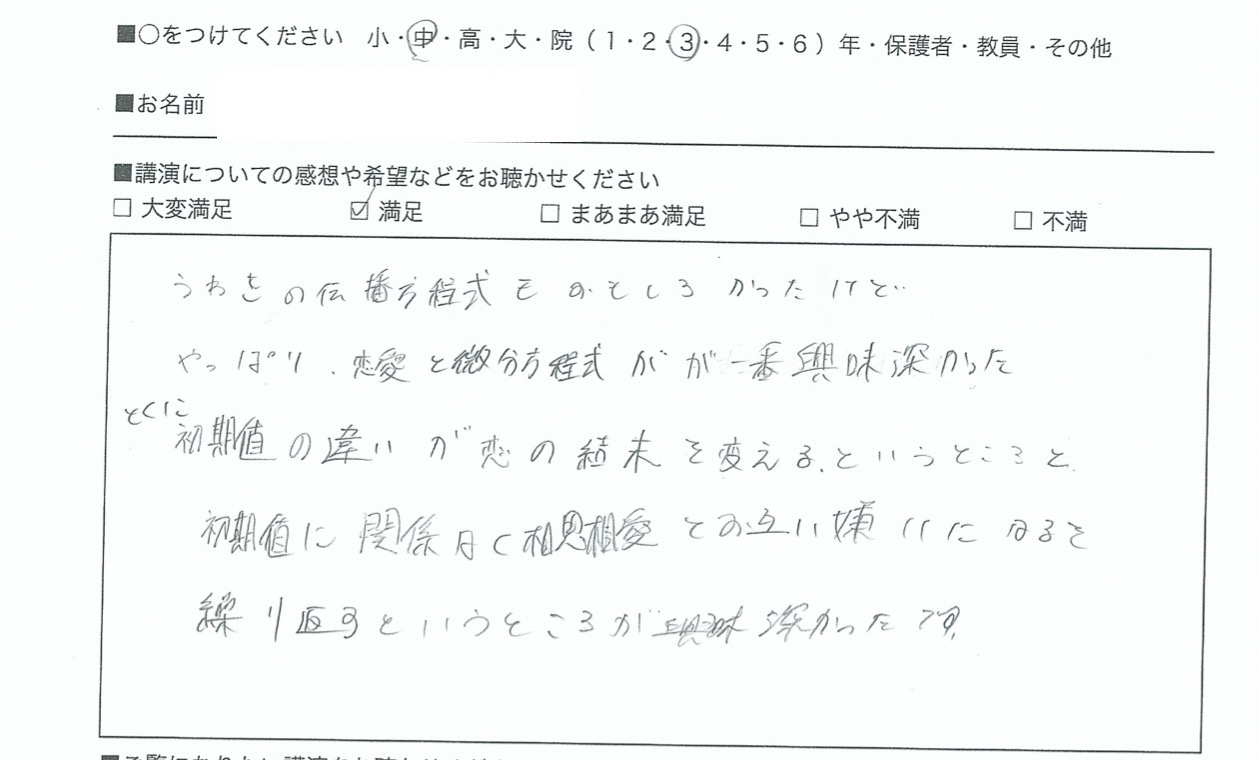 ■○をつけてください 小・中・高・大・院(1・2・3・4・5・6)年・保護者・教員・その他
■お名前
■講演についての感想や希望などをお聴かせください
□ 大変満足 ☑ 満足 □ まあまあ満足 □ やや不満 □ 不満
うわさの伝播方程式もおもしろかったけど…
やっぱり、恋愛と微分方程式がが一番興味深かった
とくに
初期値の違いが恋の結末を変える、というところと、
初期値に関係なく相思相愛とお互い嫌いになるを
繰り返すというところが興味深かったです。